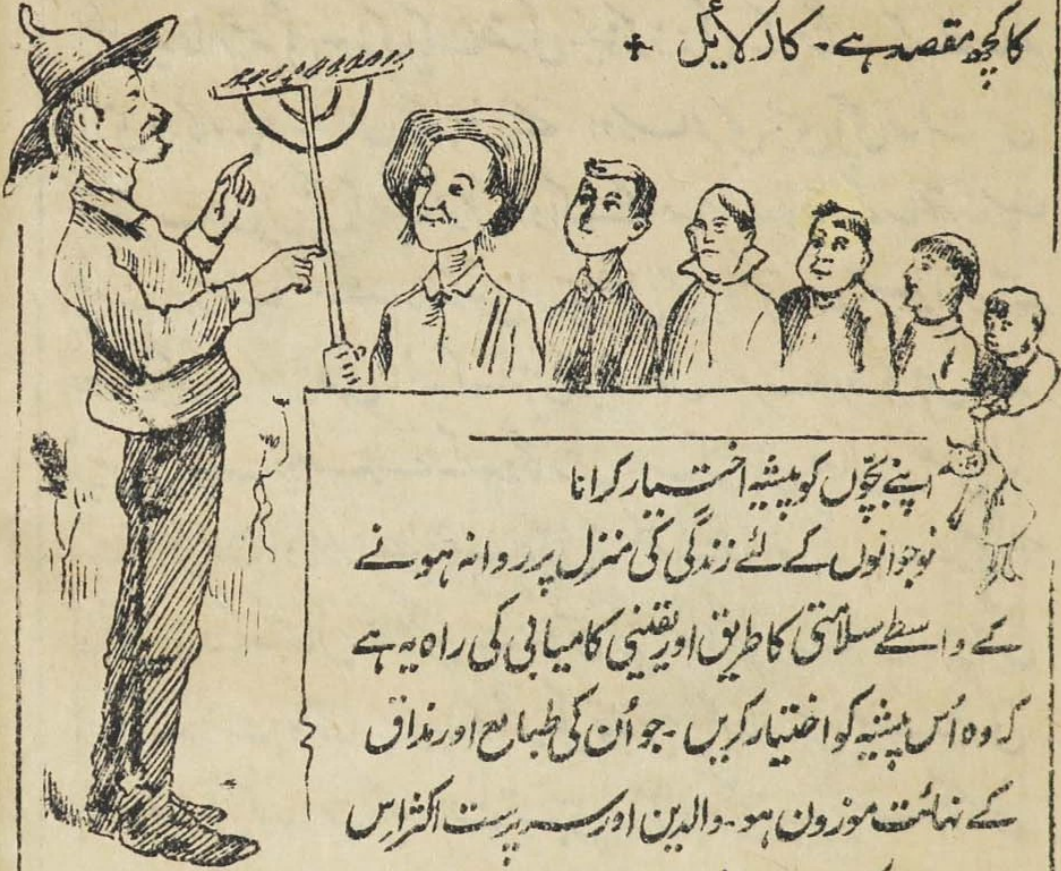 کا کچھ مقصد ہے۔ کارلائیل +
اپنے بچّوں کو پیشہ اختیار کرانا
نوجوانوں کے لئے زندگی کی منزل پر روانہ ہونے
کے واسطے سلامتی کا طریق اور یقینی کامیابی کی راہ یہ ہے
کہ وہ اُس پیشہ کو اختیار کریں۔ جو اُن کی طبایع اور مذاق
کے نہائت موزون ہو۔ والدین اور سرپرست اکثر اِس